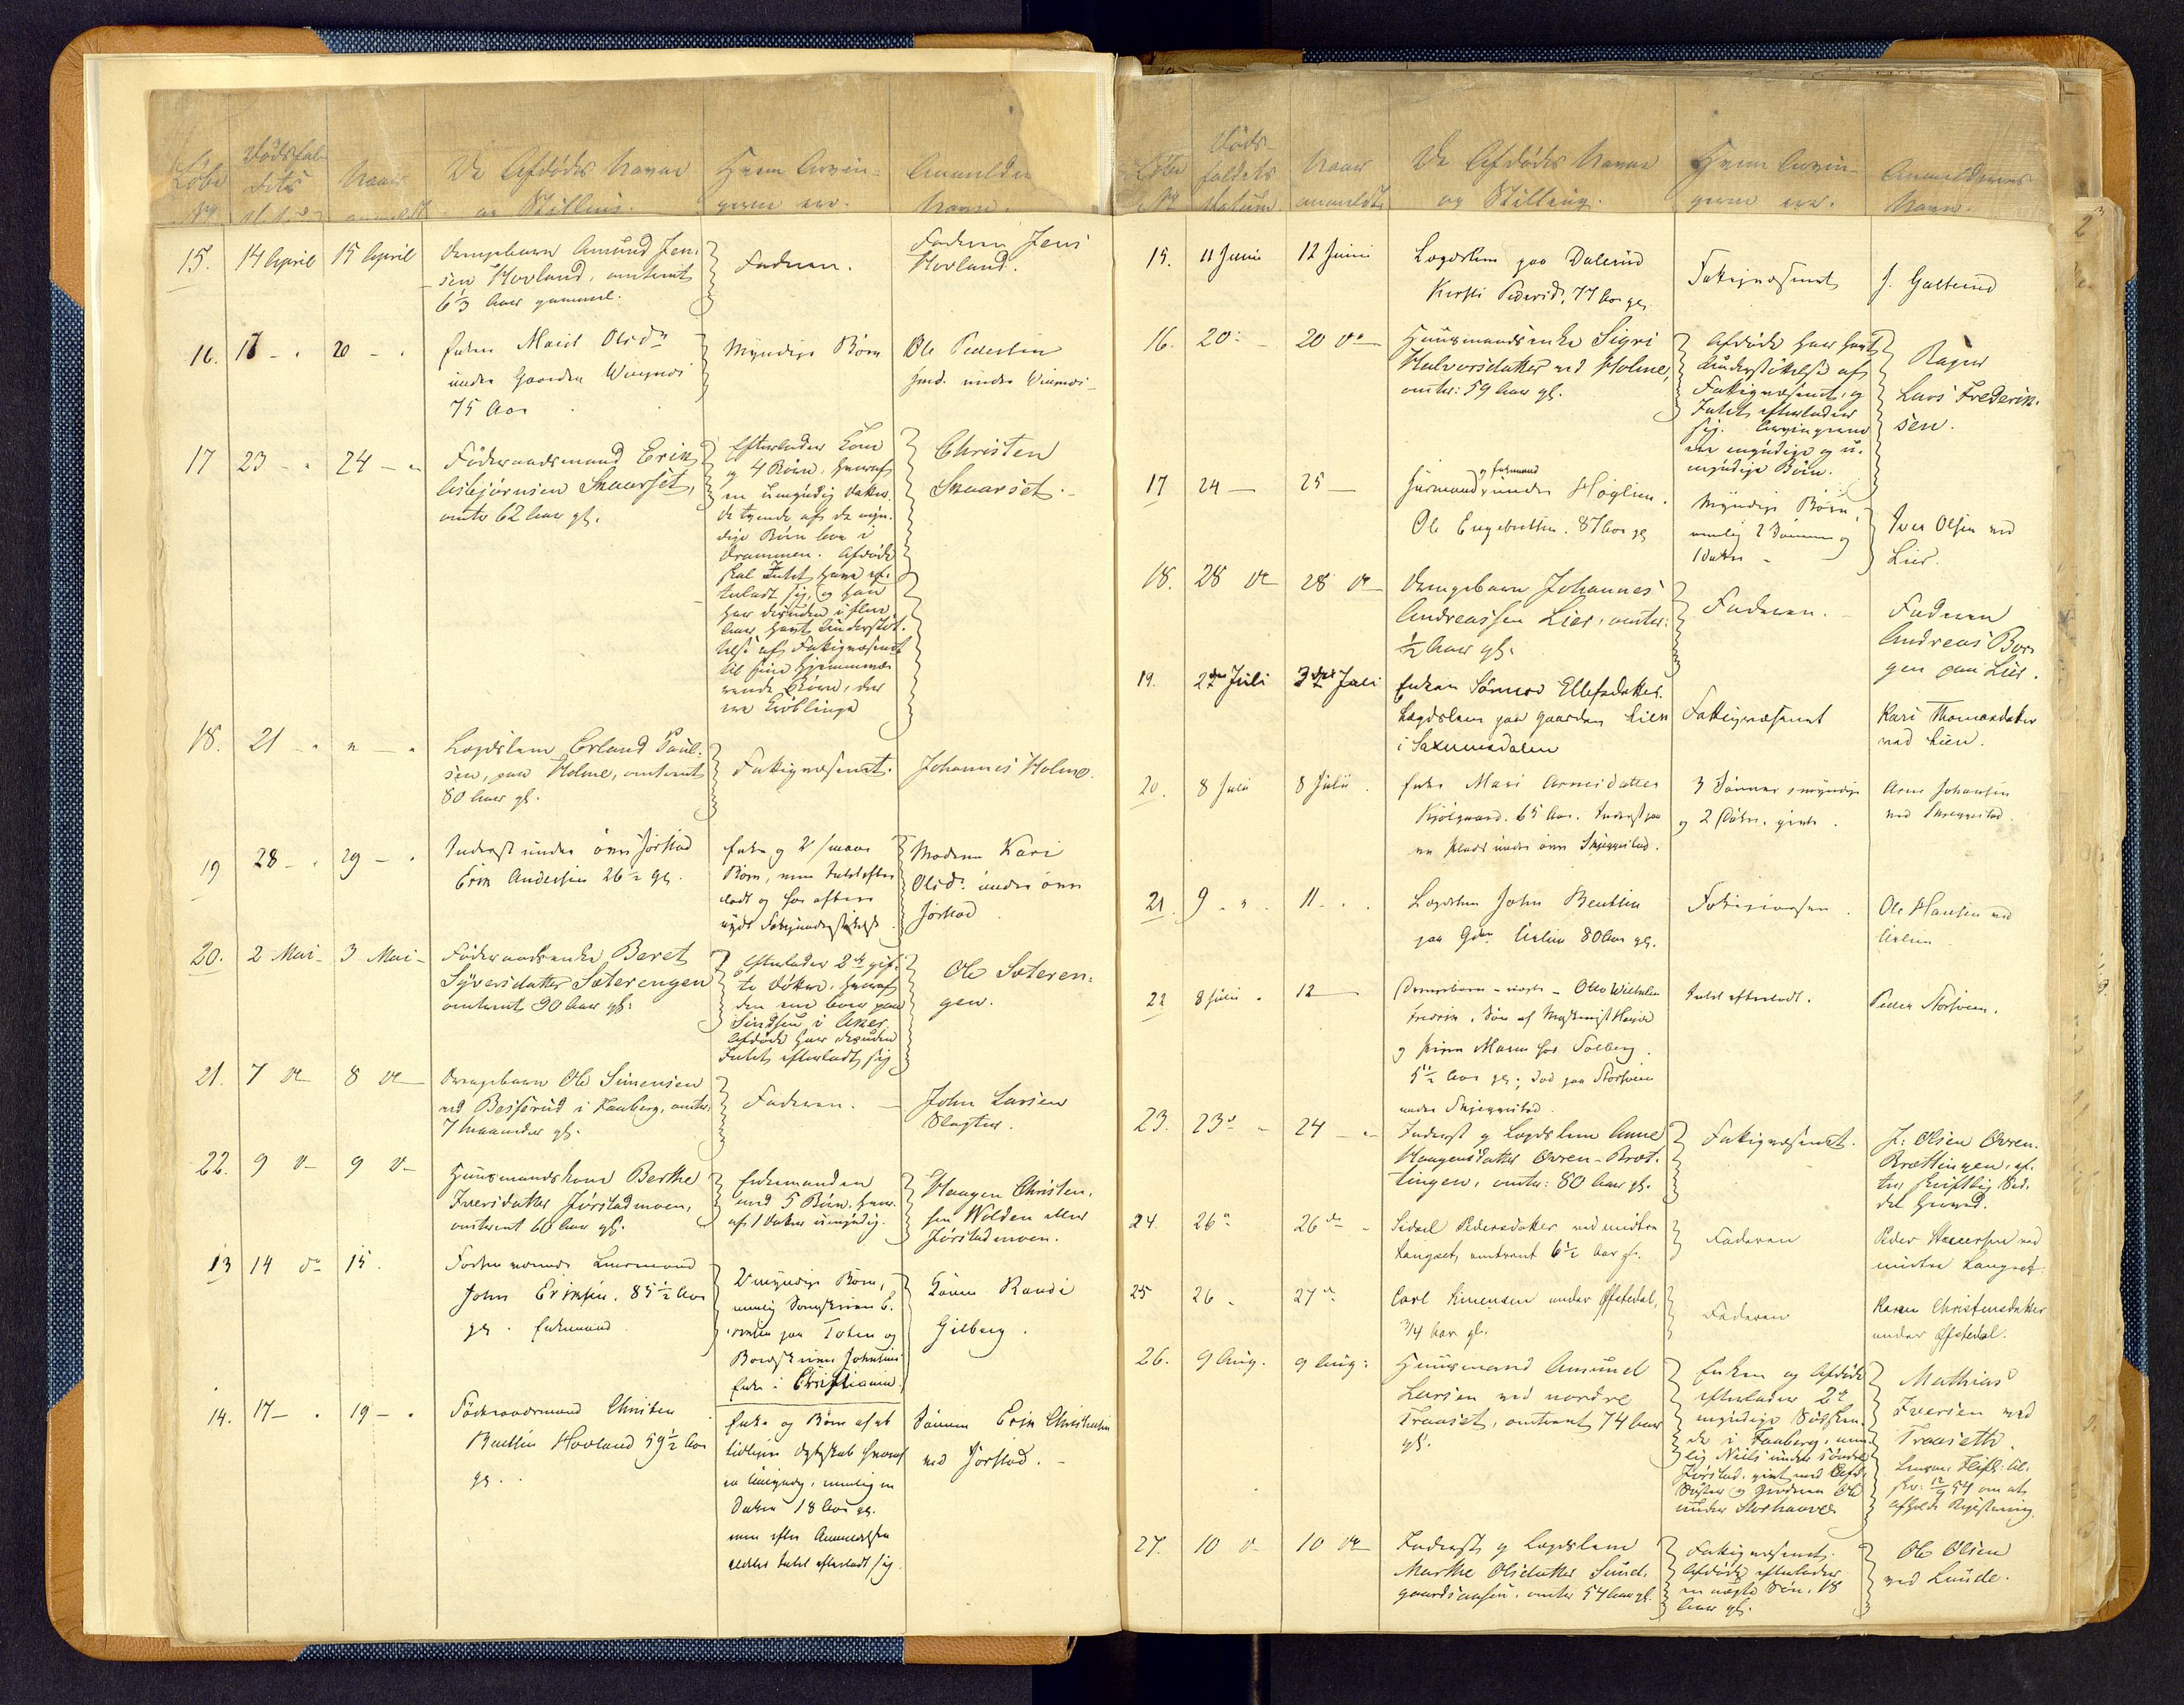 Löbe
No
Dødsfal-
dets
Naar
anmeldt
De Afdødes Navne
og Stilling.
Hvem Arvin-
gerne ere.
Anmelder
Navn.
15.
14 April
15 April
Drengebarn Amund Jen-
sen Hovland, omtrent
6 1/3 Aar gammel.
Faderen.
Faderen Jens
Hovland.
16.
20 -
Enken Marit Olsdr
under Gaarden
75 Aar
Myndige Börn
Ole Pedersen
under
17
23 - "
24 - "
Föderaadsmand Erik
Asbjørnsen Skaarset,
omtr 62 Aar gl.
Efterlader Kone
og 4 Börn, hvoraf
en umyndig Datter.
de tvende af de myn-
dige Börn bor i
Drammen. Afdøde
skal Intet have ef-
terladt sig, og han
har desuden i flere
Aar havt Understöt-
telse af Fattigvæsenet
til sine hjemmevæ-
rende Börn, der
ere Kröblinge
Christen
Skaarset.
18.
21 - "
" - "
Lægdslem Erland Paul-
sen, paa Holme, omtrent
80 Aar gl.
Fattigvæsenet.
Johannes Holme.
19
28 - "
29 - "
Inderst under övre Jörstad
Erik Andersen 26 1/2 gl.
Enke og 2 smaae
Börn, men Intet efter-
ladt og har oftere
nydt Fattigunderstöttelse
Moderen Kari
Olsdr under övre
Jörstad
20.
2 Mai -
3 Mai -
Föderaadsenke Beret
Syversdatter Sæterengen
omtrent 90 Aar gl.
Efterlader 2de gif-
te Döttre, hvoraf
den ene boer paa
i Aker
Afdøde har desuden
Intet efterladt sig
Ole Sæteren-
gen.
21.
7 de
8 de
Drengebarn Ole Simensen
ved Besserud i Faaberg, omtr.
7 Maaneder gl.
Faderen.
John Larsen
Slagter.
22.
9 d
9 d
Huusmandskone Berthe
Iversdatter Jörstadmoen,
omtrent 60 Aar gl.
Enkemanden
med 5 Börn, hvor-
af 1 Datter umyndig.
Haagen Christen-
sen Volden eller
Jörstadmoen.
13
14 do
15.
Forhenværende Lensmand
John Eriksen. 85 1/2 Aar
gl. Enkemand
2 myndige Börn,
nemlig Sorenskriver E.
paa Toten og
Johnsens
Enke i Christiania.
Sönnen Randi
Gilberg.
14.
17 - "
19 - "
Föderaadsmand Christen
Hovland 59 1/2 Aar
gl.
Enke og Börn af et
tidligere Ægteskab hvoraf
en Umyndig, nemlig en
Datter 18 Aar gl.
men efter Anmeldelsen
Intet efterladt sig.
Sönnen Erik Christensen
ved Jörstad.
Löbe
No
Døds-
faldets
Datum.
Naar
anmeldt
De Afdödes Navne
og Stilling.
Hvem Arvin-
gerne ere.
Anmelderens
Navn.
15.
11 Juni
12 Juni
Lægdslem paa Dalerud
Kirsti Pedersd. 77 Aar gl.
Fattigvæsenet
J. Galterud
16.
20
20 do
Huusmandsenke Sigri
Halvorsdatter ved Holme,
omtr: 59 Aar gl.
Afdøde har havt
Understöttelse af
Fattigvæsenet, og
Intet efterlader
sig. Arvingerne
ere myndige og u-
myndige Börn.
Lars Frederik-
sen.
17
24 -
25 -
og Enkemand
Huusmand under Höglien.
Ole Engebretsen. 87 Aar gl
Myndige Börn,
nemlig 2 Sönner og
1 Datter
Iver Olsen ved
Lier.
18.
28 de
28 de
Drengebarn Johannes
Andreassen Lier, omtr:
1/2 Aar gl.
Faderen.
Faderen
Andreas Bor-
gen paa Lier.
19.
2den Juli
3die Juli
Enken Sönnev Ellefsdatter.
Lægdslem paa gaarden Lien
i Saxumsdalen
Fattigvæsenet
Kari Thomasdatter
ved Lien.
20.
8 Juli
8 Julii
Enke Mari Arnesdatter
Kjölgaard. 65 Aar. Inderst paa
en Plads under övre Skjeggestad.
3 Sönner myndige
og 2 Döttre, givte.
Arne Johansen
ved Skjeggestad
21.
9 - "
11 -
Lægdslem John Bentsen
paa Gdn 80 Aar gl.
Fattigvæsenet.
Ole Hansen ved
22
8 Julii
12 -
Drengebarn - uægte - Otto Wilhelm
Fredrik, Sön af
og Pigen Maren hos Solberg.
5 1/2 Aar gl; död paa Storsveen
under Skjeggestad
Intet efterladt.
Peder Storsveen.
23.
23 -
24 -
Inderst og Lægdslem Anne
Haagensdatter Owren-Bræt-
tingen, omtr: 80 Aar gl.
Fattigvæsenet.
J: Olsen Owren-
Brættingen, ef-
ter skriftlig Sed-
del
24.
26"
26de
Sidsel Pedersdatter ved midtre
Langset, omtrent 6 1/2 Aar gl.
Faderen
Peder ved
midtre Langset
25
26 -
27 d
Carl Simensen under Öfstedal,
3/4 Aar gl.
Faderen
Karen Christensdatter
under Öfstedal.
26.
9 Aug.
9 Aug:
Huusmand Amund
Larsen ved nordre
Traaset, omtrent 74 Aar
gl.
Enken og Afdöde
efterlader 2de
myndige Södsken-
de i Faaberg, nem-
lig Niels under söndre
Jörstad, givt med Afd.
Söster og Ole
under Storhaave
Mathias
Iversen ved
Traaseth.
Lensm. til-
skr: 12/9 54 om at
afholde Registrering.
27.
10 d
10 de
Inderst og Lægdslem
Marthe Olsdatter Sund-
gaardsaasen, omtr 54 Aar gl.
Fattigvæsenet.
Afdöde efterlader
en uægte Sön, 18
Aar gl.
Ole Olsen
ved Lunde.